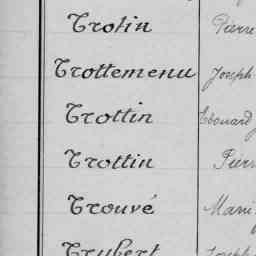 Trotin Pierre
Trottemenu Joseph
Trottin Edouard
Trottin Pierr
Trouvé Mari
Trubert Joseph